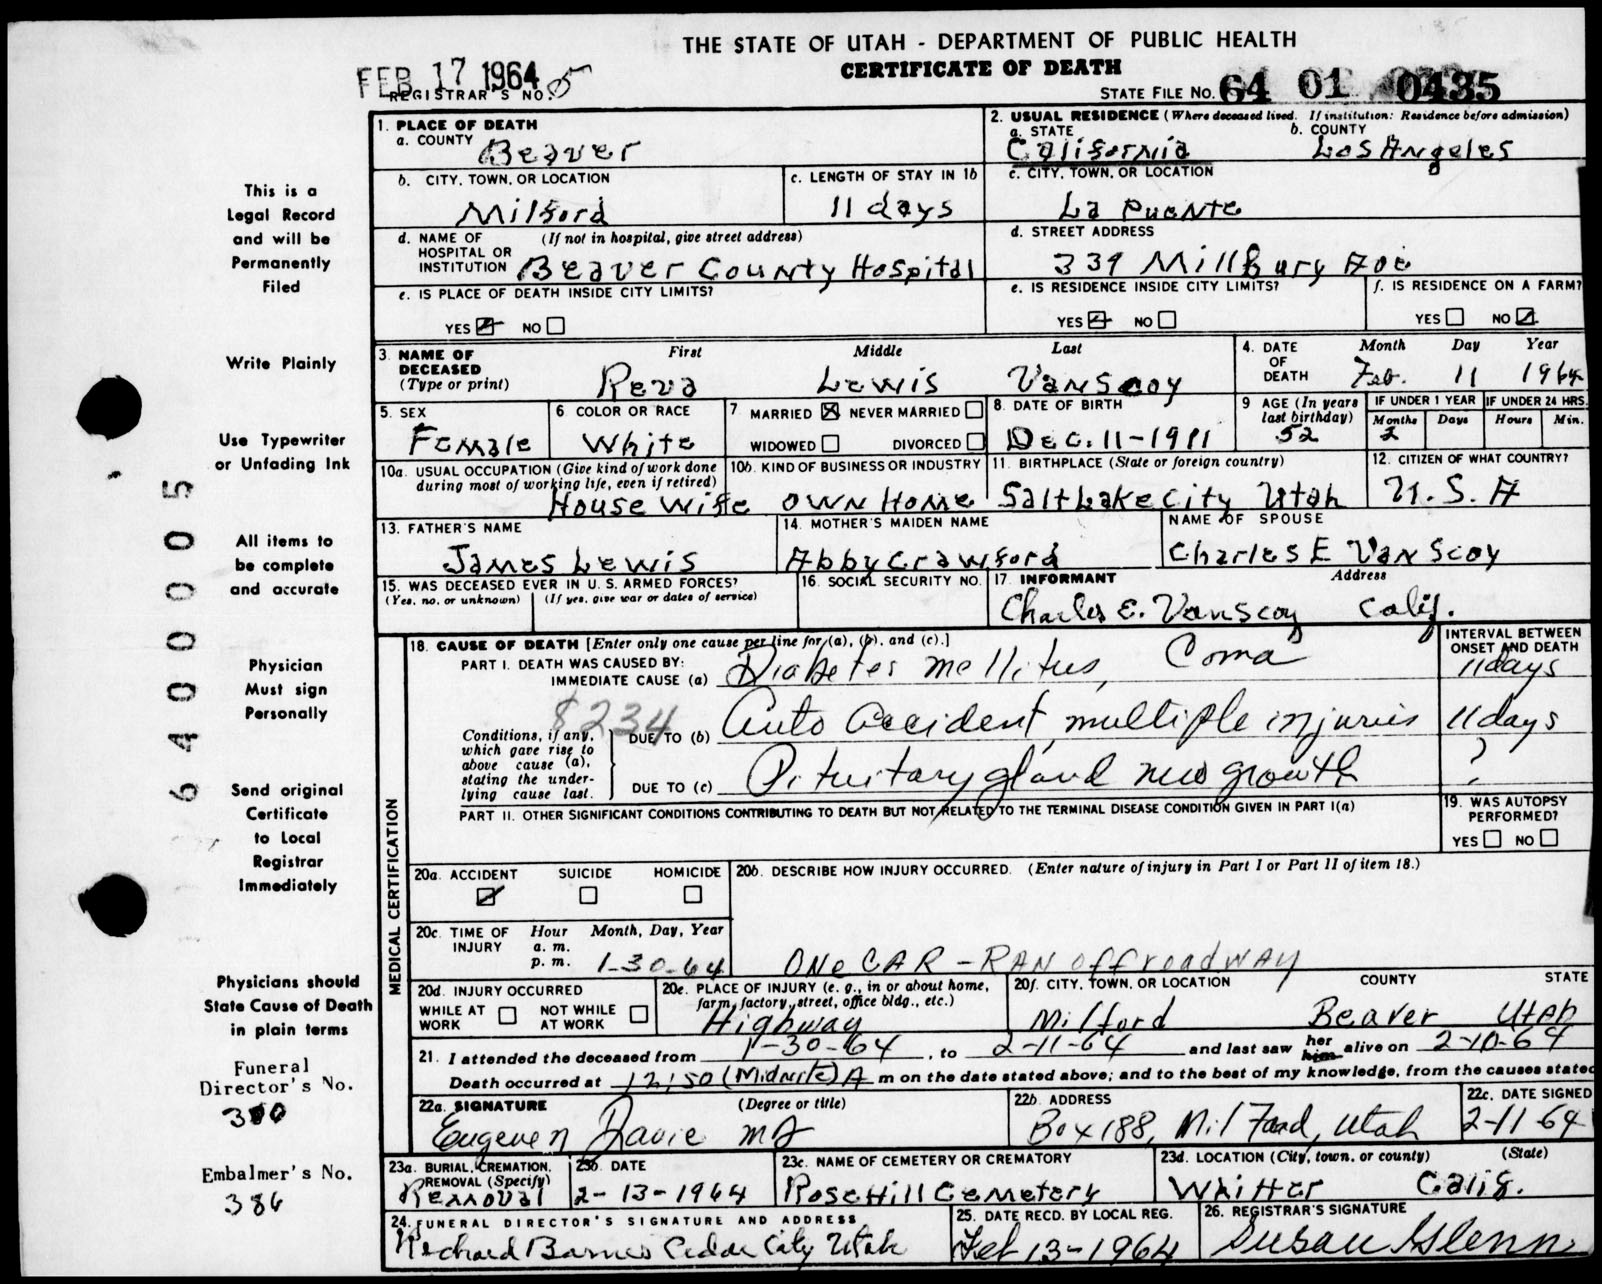 THE STATE OF UTAH - DEPARTMENT OF PUBLIC HEALTH
CERTIFICATE OF DEATH
FEB 17 1964
REGISTRAR'S NO. 5
STATE FILE NO. 64 01 0435
This is a
Legal Record
and will be
Permanently
Filed
Write Plainly
Use Typewriter
or Unfading Ink
All items to
be complete
and accurate
Physician
Must sign
Personally
Send original
Certificate
to Local
Registrar
Immediately
Physicians should
State Cause of Death
in plain terms
Funeral
Director's No.
300
Embalmer's No.
386
6400005
1. PLACE OF DEATH
a. COUNTY Beaver
2. USUAL RESIDENCE (Where deceased lived. If institution: Residence before admission)
a. STATE California
b. COUNTY Los Angeles
b. CITY, TOWN, OR LOCATION
Milford
c. LENGTH OF STAY IN 1b
11 days
c. CITY, TOWN, OR LOCATION
La Puente
d. NAME OF HOSPITAL OR INSTITUTION (If not in hospital, give street address)
Beaver County Hospital
d. STREET ADDRESS
339 Millbury Ave
e. IS PLACE OF DEATH INSIDE CITY LIMITS?
YES NO
e. IS RESIDENCE INSIDE CITY LIMITS?
YES NO
f. IS RESIDENCE ON A FARM?
YES NO
3. NAME OF DECEASED (Type or print)
First Middle Last
Reva Lewis VanScoy
4. DATE OF DEATH
Month Day Year
Feb. 11 1964
5. SEX
Female
6 COLOR OR RACE
White
7 MARRIED NEVER MARRIED
WIDOWED DIVORCED
8. DATE OF BIRTH
Dec. 11-1911
9 AGE (In years last birthday)
52
IF UNDER 1 YEAR
Months Days
2
IF UNDER 24 HRS.
Hours Min.
10a. USUAL OCCUPATION (Give kind of work done during most of working life, even if retired)
House wife
10b. KIND OF BUSINESS OR INDUSTRY
OWN Home
11. BIRTHPLACE (State or foreign country)
Salt Lake City Utah
12. CITIZEN OF WHAT COUNTRY?
U. S. A
13. FATHER'S NAME
James Lewis
14. MOTHER'S MAIDEN NAME
Abby Crawford
NAME OF SPOUSE
Charles E VanScoy
15. WAS DECEASED EVER IN U. S. ARMED FORCES?
(Yes, no, or unknown) (If yes, give war or dates of service)
16. SOCIAL SECURITY NO.
17. INFORMANT Address
Charles E. Vanscoy Calif.
MEDICAL CERTIFICATION
18. CAUSE OF DEATH [Enter only one cause per line for (a), (b), and (c).]
INTERVAL BETWEEN ONSET AND DEATH
PART I. DEATH WAS CAUSED BY:
IMMEDIATE CAUSE (a) Diabetes mellitus, Coma
11 days
8234
Conditions, if any, which gave rise to above cause (a), stating the underlying cause last.
DUE TO (b) Auto accident, multiple injuries
11 days
DUE TO (c) Pituitary gland new growth
?
PART II. OTHER SIGNIFICANT CONDITIONS CONTRIBUTING TO DEATH BUT NOT RELATED TO THE TERMINAL DISEASE CONDITION GIVEN IN PART I(a)
19. WAS AUTOPSY PERFORMED?
YES NO
20a. ACCIDENT SUICIDE HOMICIDE
20b. DESCRIBE HOW INJURY OCCURRED. (Enter nature of injury in Part I or Part II of item 18.)
ONE CAR - RAN off roadway
20c. TIME OF INJURY
Hour Month, Day, Year
a. m.
p. m. 1-30-64
20d. INJURY OCCURRED
WHILE AT WORK NOT WHILE AT WORK
20e. PLACE OF INJURY (e. g., in or about home, farm, factory, street, office bldg., etc.)
Highway
20f. CITY, TOWN, OR LOCATION COUNTY STATE
Milford Beaver Utah
21. I attended the deceased from 1-30-64, to 2-11-64 and last saw her him alive on 2-10-64
Death occurred at 12:50 (Midnite) A m on the date stated above; and to the best of my knowledge, from the causes stated
22a. SIGNATURE (Degree or title)
Eugene N Davie MD
22b. ADDRESS
Box 188, Milford, Utah
22c. DATE SIGNED
2-11-64
23a. BURIAL, CREMATION, REMOVAL (Specify)
Removal
23b. DATE
2-13-1964
23c. NAME OF CEMETERY OR CREMATORY
Rose Hill Cemetery
23d. LOCATION (City, town, or county) (State)
Whitter Calif.
24. FUNERAL DIRECTOR'S SIGNATURE AND ADDRESS
Richard Barnes Cedar City Utah
25. DATE RECD. BY LOCAL REG.
Feb 13-1964
26. REGISTRAR'S SIGNATURE
Susan Glenn